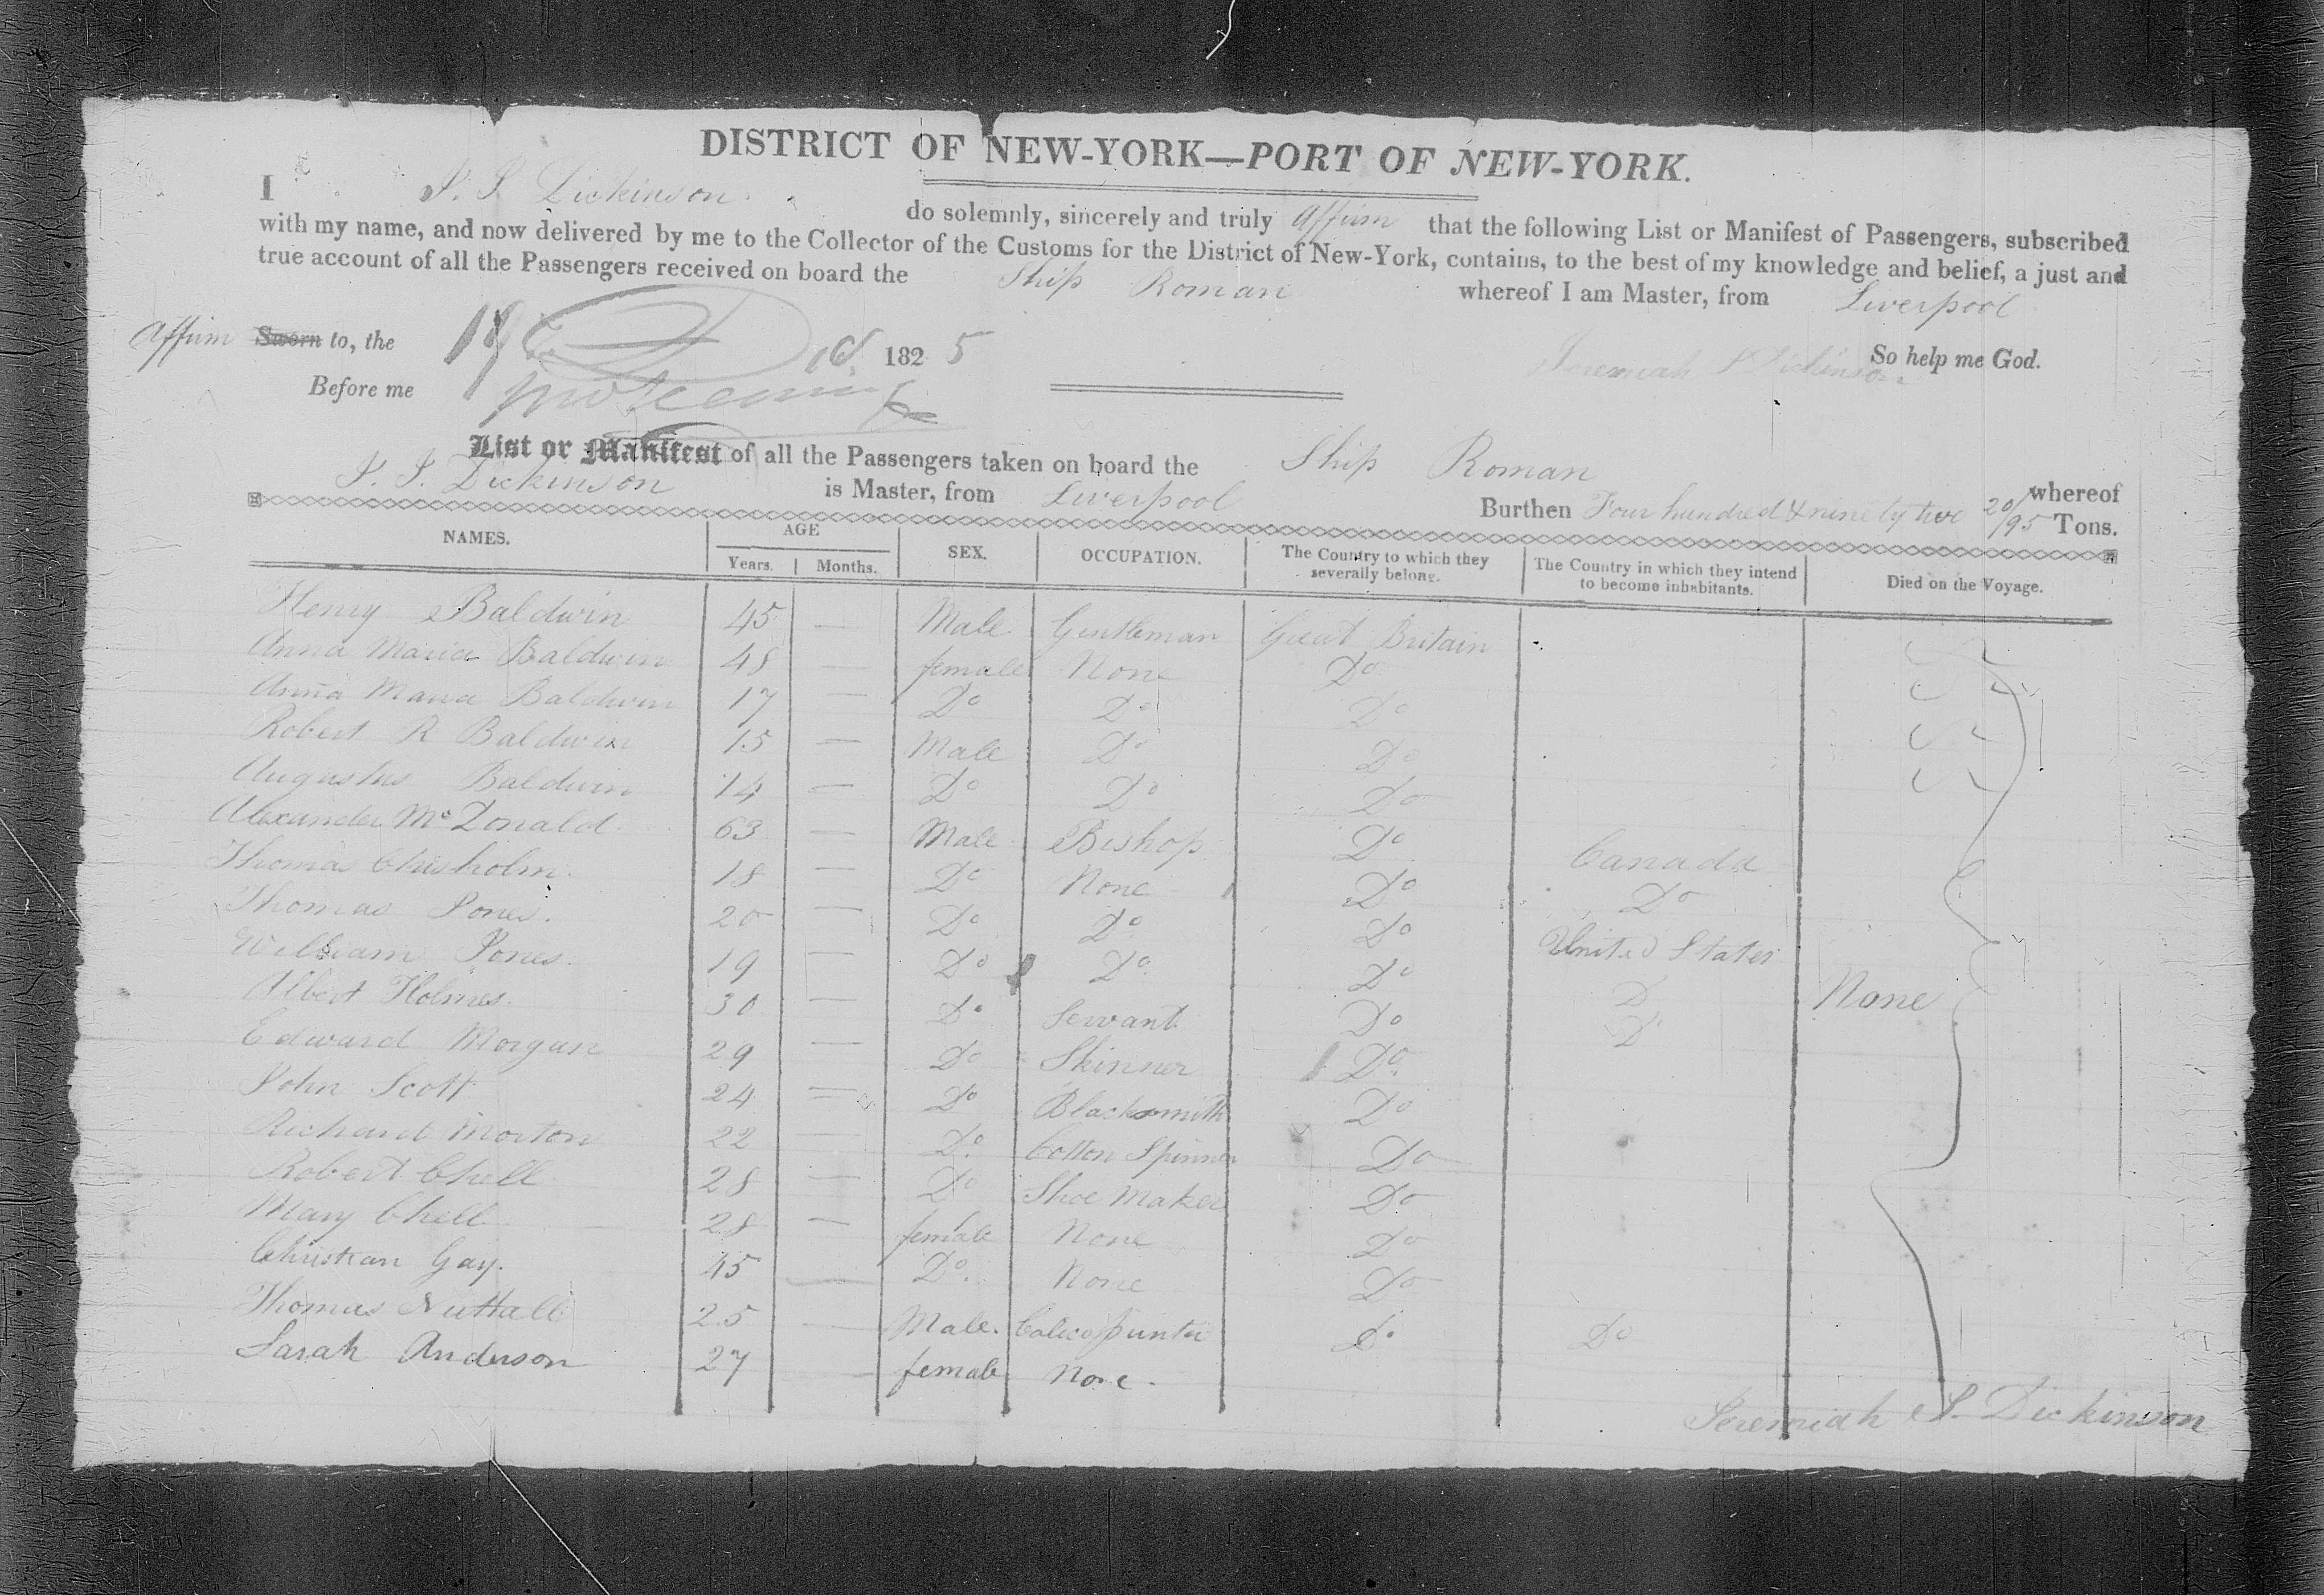 DISTRICT OF NEW-YORK—PORT OF NEW-YORK.
I J. S. Dickinson do solemnly, sincerely and truly affirm that the following List or Manifest of Passengers, subscribed
with my name, and now delivered by me to the Collector of the Customs for the District of New-York, contains, to the best of my knowledge and belief, a just and
true account of all the Passengers received on board the Ship Roman whereof I am Master, from Liverpool
affirm Sworn to, the 18 182 5 So help me God.
Jeremiah S Dickinson
Before me
List or Manifest of all the Passengers taken on board the Ship Roman whereof
J. S. Dickinson is Master, from Liverpool Burthen Four hundred & ninety two 20/95 Tons.
NAMES. AGE Years. Months. SEX. OCCUPATION. The Country to which they severally belong. The Country in which they intend to become inhabitants. Died on the Voyage.
Henry Baldwin 45 — Male Gentleman Great Britain
Anna Maria Baldwin 48 — female None Do
Anna Maria Baldwin 17 — Do Do Do
Robert R Baldwin 15 — Male Do Do
Augustus Baldwin 14 — Do Do Do
Alexander McDonald 63 — Male Bishop Do Canada
Thomas Chisholm 18 — Do None Do Do
Thomas Jones. 20 — Do Do Do United States
William Jones. 19 — Do Do Do Do None
Albert Holmes. 30 — Do Servant Do Do
Edward Morgan 29 — Do Skinner Do
John Scott 24 — Do Blacksmith Do
Richard Morton 22 — Do Cotton Spinner Do
Robert Chell 28 — Do Shoe Maker Do
Mary Chell 28 — female None Do
Christian Gay. 45 — Do. None Do
Thomas Nuttall 25 — Male. Calico printer Do Do
Sarah Anderson 27 — female None.
Jeremiah S. Dickinson